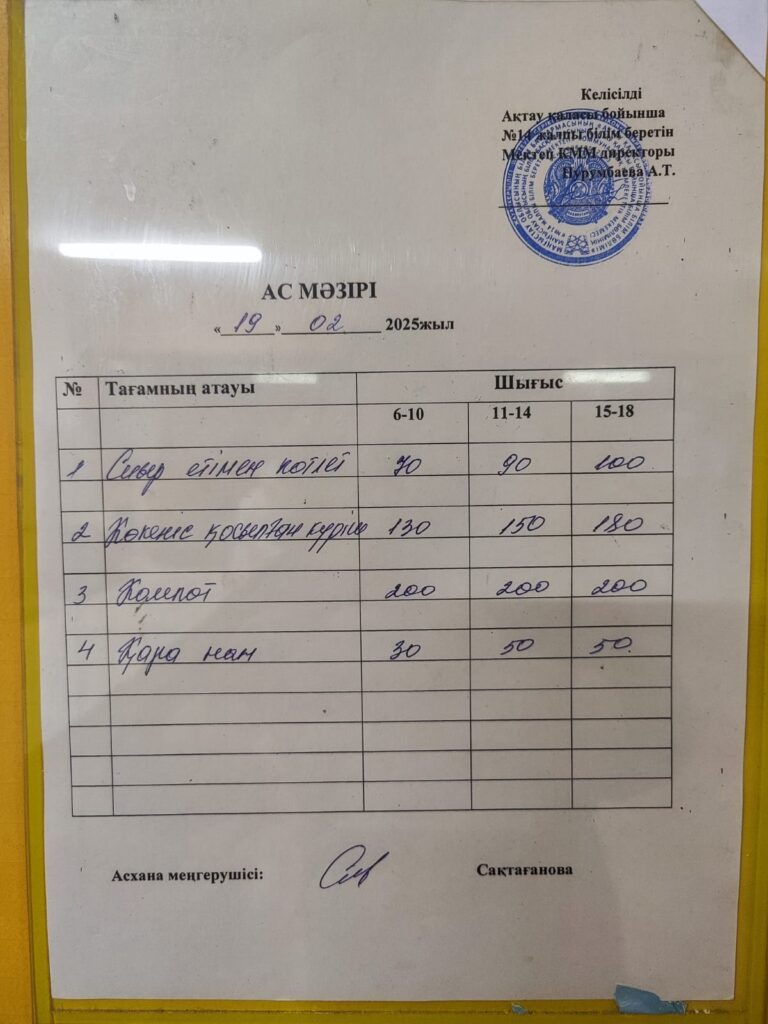 Келісілді
Ақтау қаласы бойынша
№14 жалпы білім беретін
Мектеп КММ директоры
Нурумбаева А.Т.
АС МӘЗІРІ
«19» 02 2025жыл
№ Тағамның атауы Шығыс
6-10 11-14 15-18
1 Сиыр етімен котлет 70 90 100
2 Көкөніс қосылған күріш 130 150 180
3 Компот 200 200 200
4 Қара нан 30 50 50
Асхана меңгерушісі: Сақтағанова